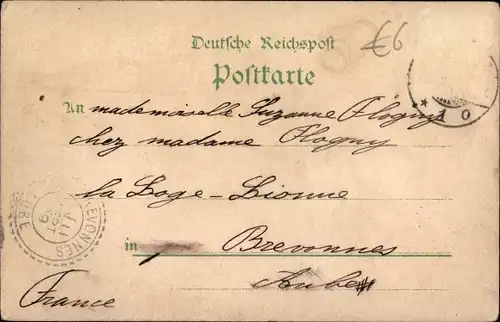 Deutsche Reichspost
€6
Postkarte
An mademoiselle Suzanne Flogny
chez madame Flogny
la Loge-Lionne
in Brevonnes
Aube
France
BREVONNES
AUBE